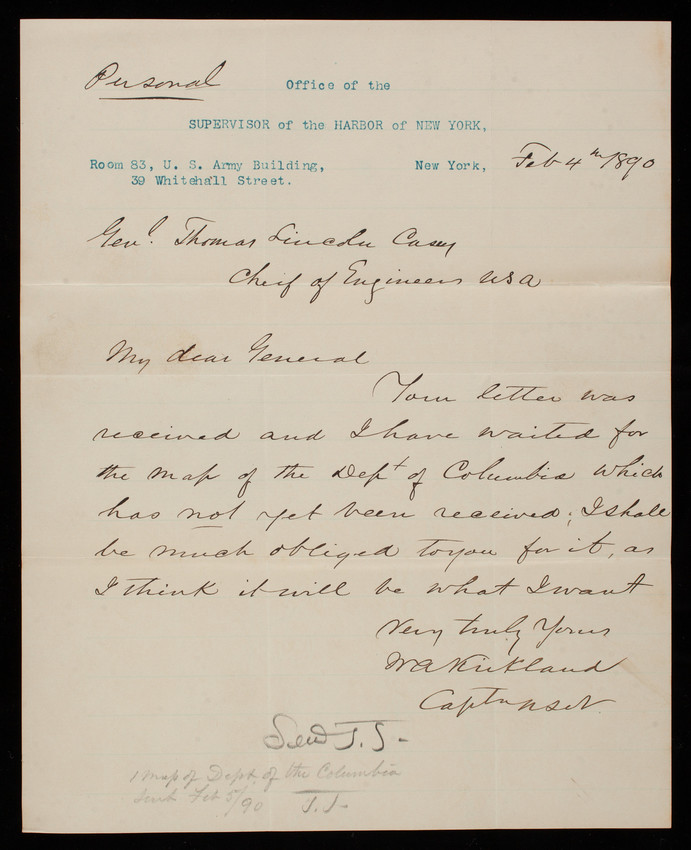 Personal
Office of the
SUPERVISOR of the HARBOR of NEW YORK,
Room 83, U. S. Army Building,
39 Whitehall Street.
New York, Feb 4th 1890
Genl. Thomas Lincoln Casey
Cheif of Engineers USA
My dear General
Your letter was
received and I have waited for
the map of the Dept of Columbia which
has not yet been received; I shall
be much obliged to you for it, as
I think it will be what I want
Very truly Yours
WA Kirkland
Captn USN.
Send
1 map of Dept. of the Columbia
Sent Feb 5/90